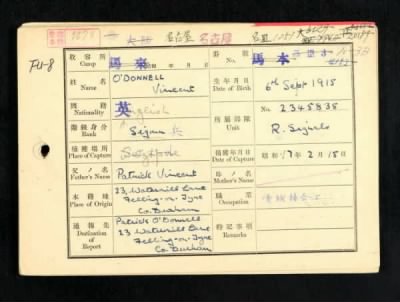 名古屋 名古屋
FU-8
收容所 Camp 馬來 年 月 日
番號 No. 馬本
姓名 Name O'DONNELL Vincent
生年月日 Date of Birth 6th Sept 1915
國籍 Nationality 英 English
No. 2345835
階級身分 Rank Sigmn 兵
所屬部隊 Unit R. Signals
捕獲場所 Place of Capture Singapore
捕獲年月日 Date of Capture 昭和 17年 2月 15日
父ノ名 Father's Name Patrick Vincent
母ノ名 Mother's Name
本籍地 Place of Origin 23, Watermill Lane
Felling-on-Tyne
Co. Durham
職業 Occupation
通報先 Destination of Report Patrick O'Donnell
23 Watermill Lane
Felling-on-Tyne
Co. Durham
特記事項 Remarks